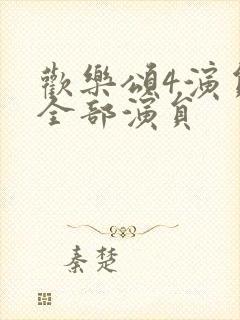 歡樂頌4演員
全部演員
秦楚